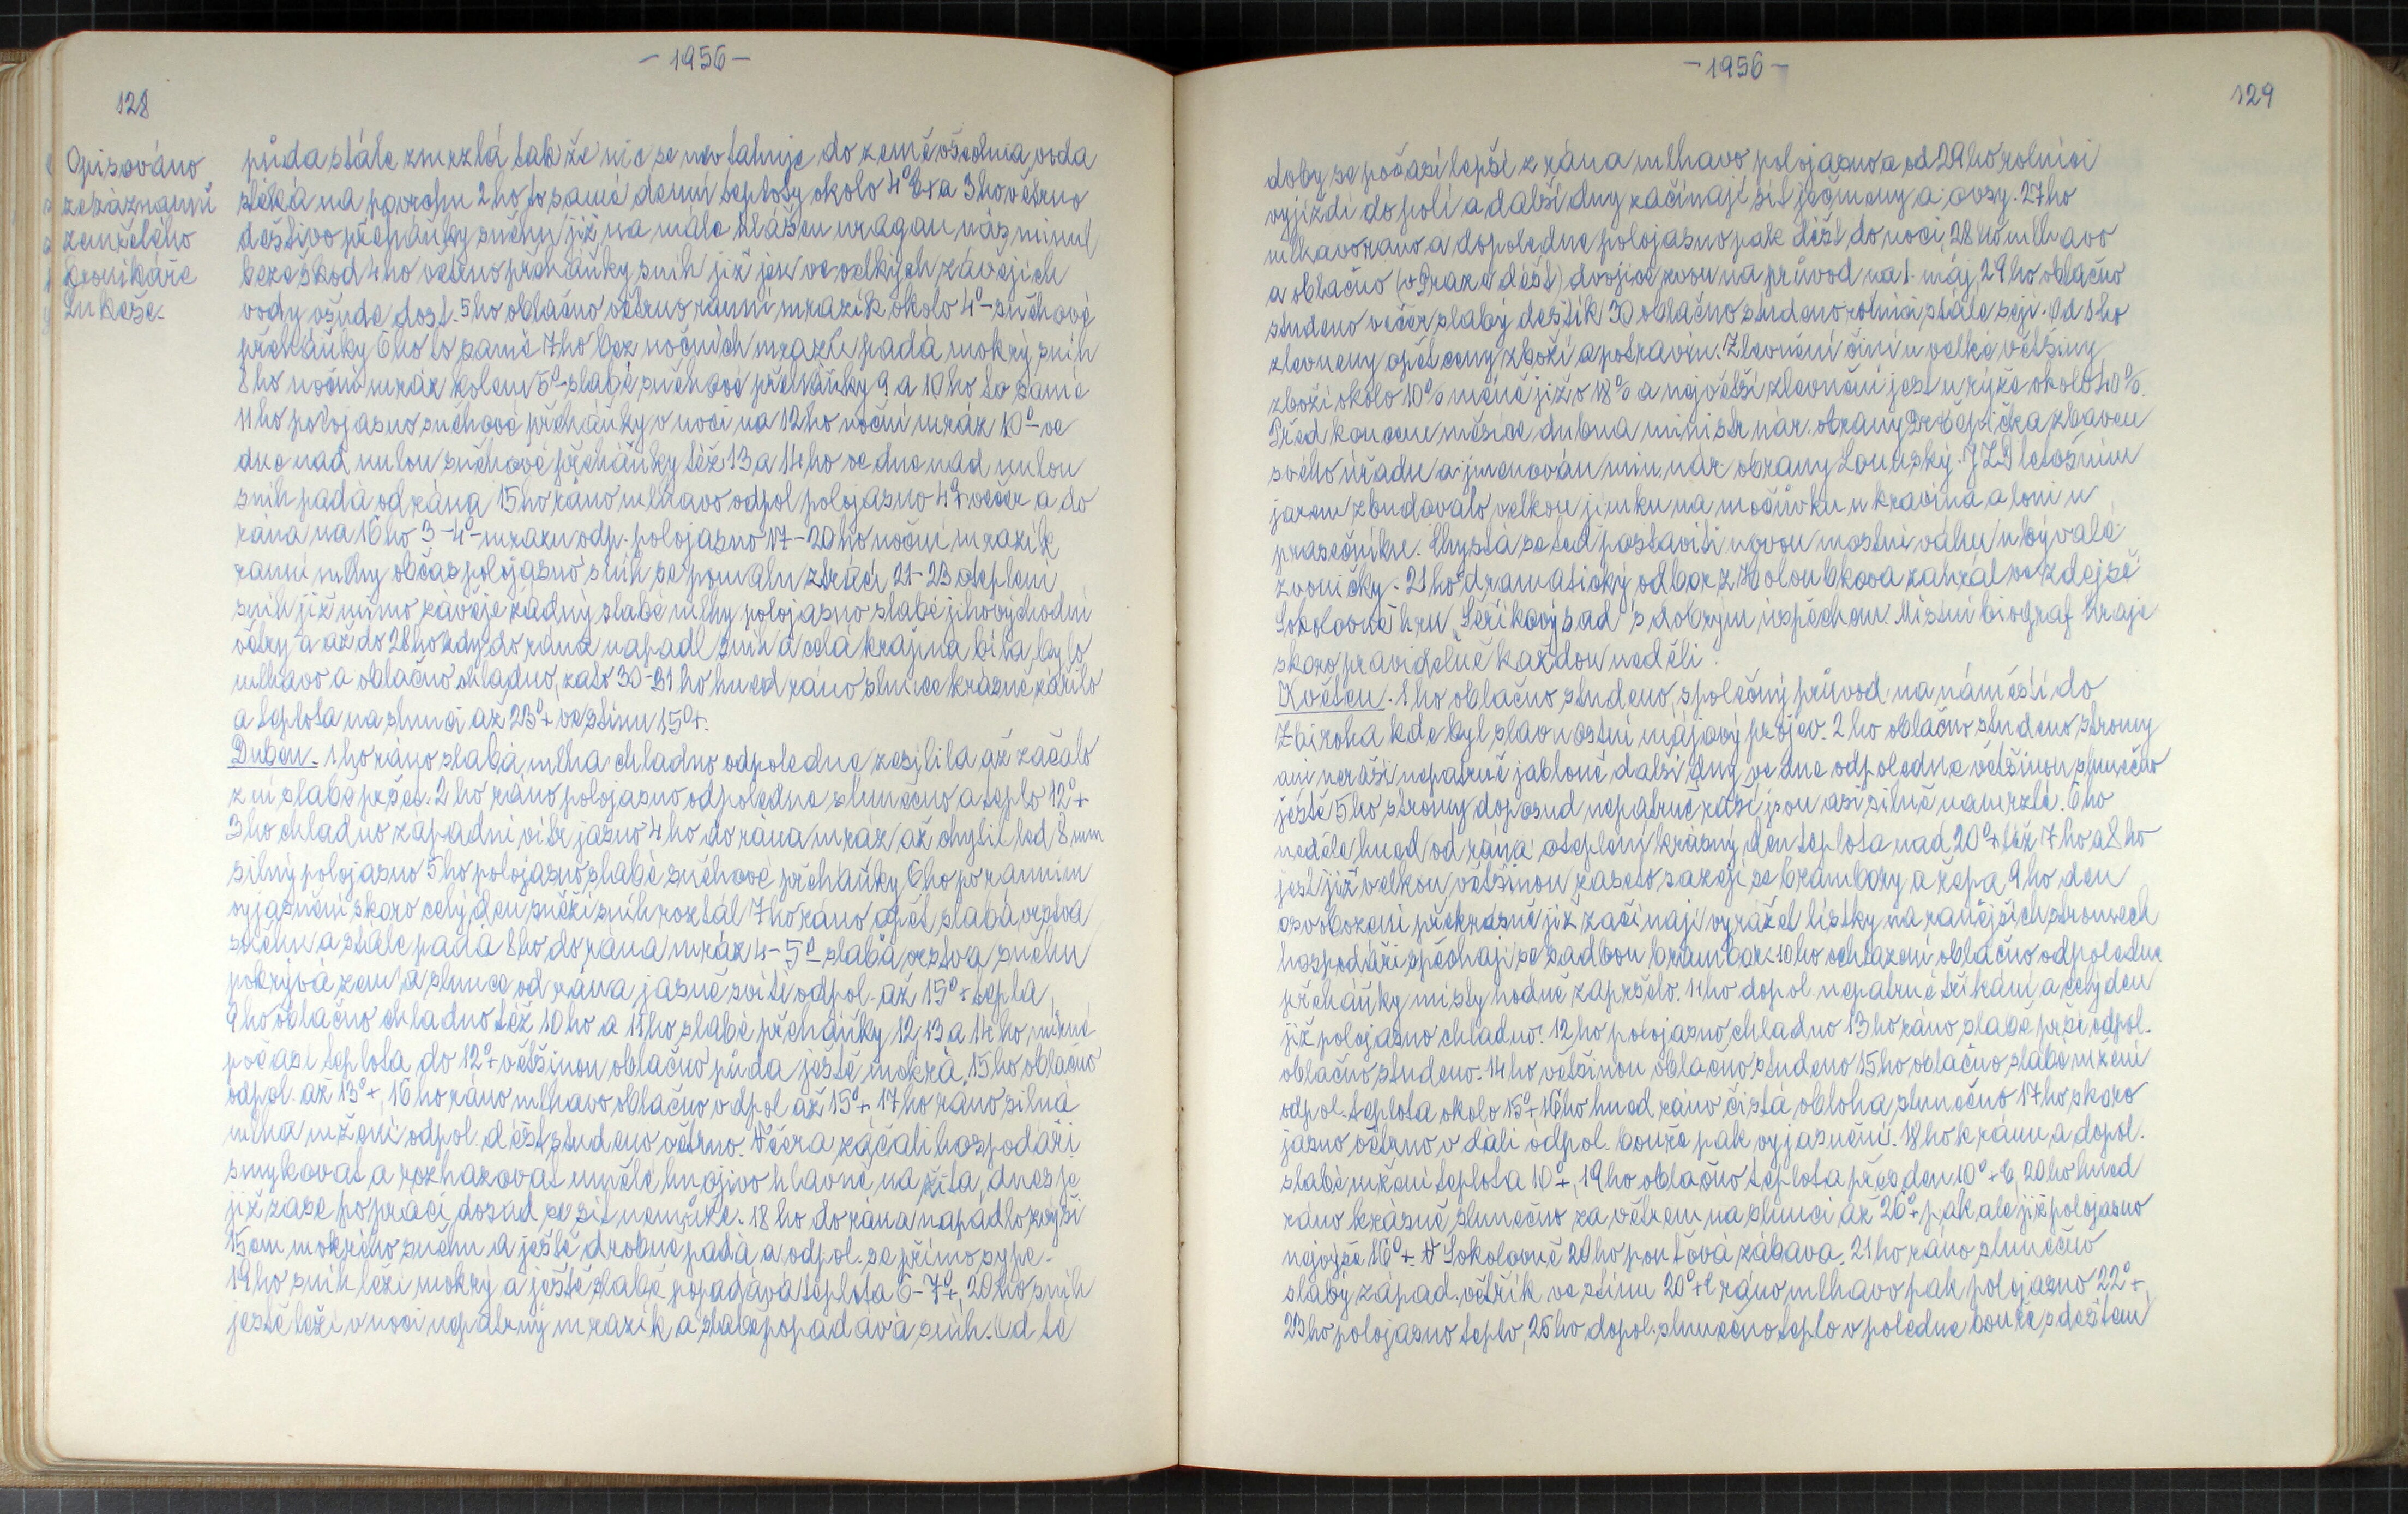 - 1956 -
128
Opisováno
ze záznamů
zemřelého
kronikáře
Lukeše.
půda stále zmrzlá tak že nic se nevtahuje do země všechna voda
stéká na povrchu 2ho to samé denní teploty okolo 4°+ a 3ho větrno
deštivo přeháňky sněhu již na mále hlášen uragan nás minul
beze škod 4ho větrno přeháňky sníh již jen ve velkých závějích
vody všude dost. 5ho oblačno větrno ranní mrazík okolo 4°- sněhové
přeháňky 6ho to samé 7ho bez nočních mrazů padá mokrý sníh
8ho noční mráz kolem 5°- slabé sněhové přeháňky 9 a 10ho to samé
11ho polojasno sněhové přeháňky v noci na 12ho noční mráz 10°- ve
dne nad nulou sněhové přeháňky též 13 a 14ho ve dne nad nulou
sníh padá od rána 15ho ráno mlhavo odpol polojasno 4°+ večer a do
rána na 16ho 3-4°- mrazu odp. polojasno 17-20ho noční mrazík
ranní mlhy občas polojasno sníh se pomalu ztrácí, 21-23 oteplení
sníh již mimo závěje žádný slabé mlhy polojasno slabé jihovýchodní
větry a až do 28ho kdy do rána napadl sníh a celá krajina bílá, bylo
mlhavo a oblačno chladno, zato 30-31ho hned ráno slunce krásně zářilo
a teplota na slunci až 23°+ ve stínu 15°+.
Duben. 1ho ráno slabá mlha chladno odpoledne zesílila až začalo
z ní slabě pršet. 2ho ráno polojasno odpoledne slunečno a teplo 12°+
3ho chladno západní vítr jasno 4ho do rána mráz až chytil led 8 mm
silný polojasno 5ho polojasno slabé sněhové přeháňky 6ho po ranním
vyjasnění skoro celý den sněží sníh roztál 7ho ráno opět slabá vrstva
sněhu a stále padá 8ho do rána mráz 4-5°- slabá vrstva sněhu
pokrývá zem a slunce od rána jasně svítí odpol. až 15°+ tepla,
9ho oblačno chladno též 10ho a 11ho slabé přeháňky 12, 13 a 14ho mírné
počasí teplota do 12°+ většinou oblačno půda ještě mokrá, 15ho oblačno
odpol. až 13°+, 16ho ráno mlhavo oblačno odpol až 15°+, 17ho ráno silná
mlha mžení odpol. déšť studeno větrno. Včera začali hospodáři
smykovat a rozhazovat umělé hnojivo hlavně na žita, dnes je
již zase po práci dosud se sít nemůže. 18ho do rána napadlo zvýší
15cm mokrého sněhu a ještě drobně padá a odpol. se přímo sype.
19ho sníh leží mokrý a ještě slabě popadává teplota 6-7°+, 20ho sníh
ještě leží v noci nepatrný mrazík a slabě popadává sníh. Od té
- 1956 -
129
doby se počasí lepší z rána mlhavo polojasno a od 24ho rolníci
vyjíždí do polí a další dny začínají sít ječmeny a ovsy. 27ho
mlhavo ráno a dopoledne polojasno pak déšť do noci, 28ho mlhavo
a oblačno (v Praze déšť) dvojice zvou na průvod na 1. máj, 29ho oblačno
studeno večer slabý deštík 30 oblačno studeno rolníci stále sejí. Od 1ho
zlevněny opět ceny zboží a potravin. Zlevnění činí u velké většiny
zboží okolo 10% méně již o 18% a největší zlevnění jest u rýže okolo 40%.
Před koncem měsíce dubna ministr nár. obrany Dr Čepička zbaven
svého úřadu a jmenován min. nár. obrany Lomský. JZD letošním
jarem zbudovalo velkou jímku na močůvku u kravína a loni u
prasečníku. Chystá se teď postaviti novou mostní váhu u bývalé
zvoničky. 21ho dramatický odbor z Holoubkova zahrál ve zdejší
Sokolovně hru "Šeříkový sad" s dobrým úspěchem. Místní biograf hraje
skoro pravidelně každou neděli.
Květen. 1ho oblačno studeno, společný průvod na náměstí do
Zbiroha kde byl slavnostní májový projev. 2ho oblačno studeno stromy
ani neraší nepatrně jabloně další dny ve dne odpoledne většinou slunečno
ještě 5ho stromy doposud nepatrně raší jsou asi silně namrzlé. 6ho
neděle hned od rána oteplení krásný den teplota nad 20°+ též 7ho a 8ho
jest již velkou většinou zaseto sázejí se brambory a řepa, 9ho den
osvobození překrásně již začínají vyrážet lístky na ranějších stromech
hospodáři spěchají se sadbou brambor. 10ho ochlazení oblačno odpoledne
přeháňky místy hodně zapršelo. 11ho dopol nepatrné stříkání a celý den
již polojasno chladno. 12ho polojasno chladno 13ho ráno slabě prší odpol.
oblačno studeno. 14ho většinou oblačno studeno 15ho oblačno slabé mžení
odpol. teplota okolo 15°+ 16ho hned ráno čistá obloha slunečno 17ho skoro
jasno větrno v dáli odpol. bouře pak vyjasnění. 18ho k ránu a dopol.
slabé mžení teplota 10°+, 19ho oblačno teplota přes den 10°+, 20ho hned
ráno krásně slunečno za větrem na slunci až 26°+ pak ale již polojasno
nejvýše 16°+. V Sokolovně 20ho pouťová zábava. 21ho ráno slunečno
slabý západ. větřík ve stínu 20°+ ráno mlhavo pak polojasno 22°+,
23ho polojasno teplo, 25ho dopol. slunečno teplo v poledne bouře s deštěm